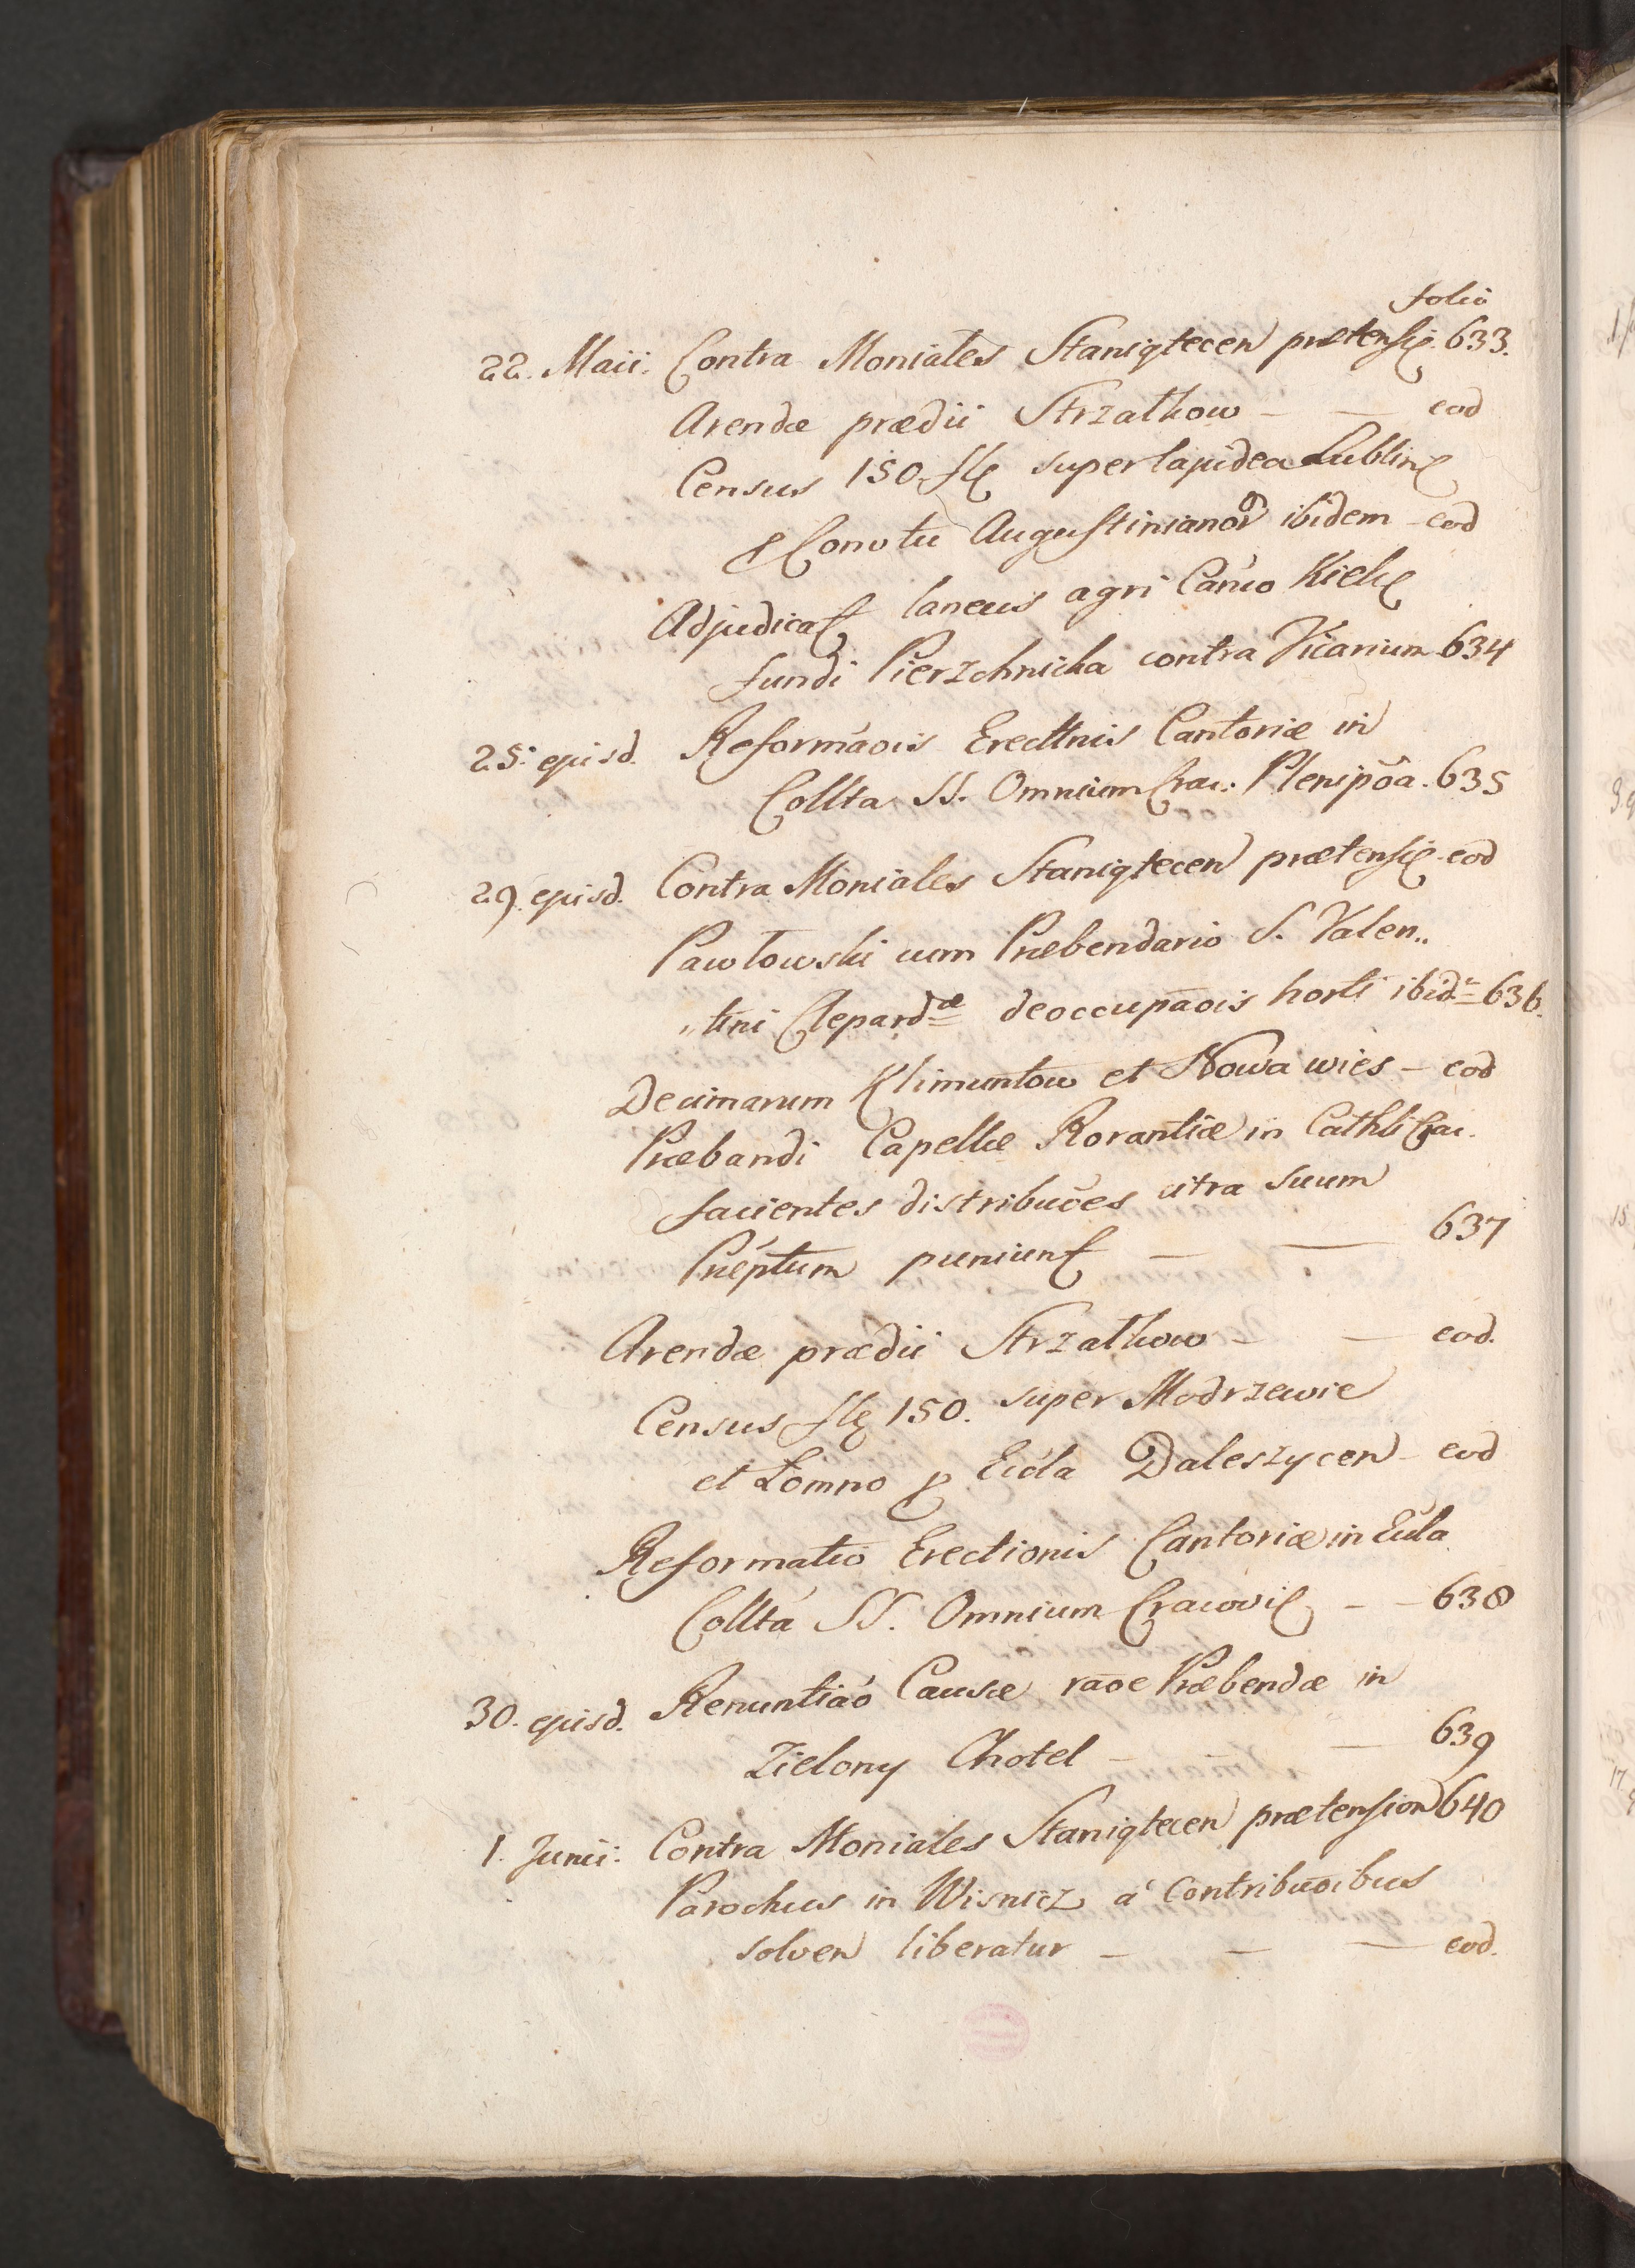 folio
22. Maii. Contra Moniales Staniątecen prætens. 633.
Arendæ prædii Strzałkow — — eod
Census 150 fl super lapidea Lublin
p Convtu Augustinianor ibidem — eod
Adjudicat laneus agri Canco Kielc
fundi Pierzchnicka contra Vicarium 634
25. ejusd. Reformaois Erecttnis Cantoriæ in
Collta SS. Omnium Crac. Plenipōa. 635
29. ejusd. Contra Moniales Staniątecen prætens. eod
Pawłowski cum Præbendario S. Valen„
„tini Clepardæ deoccupaōis horti ibid. 636.
Decimarum Klimuntow et Nowa wies — eod
Præbandi Capellæ Rorantiæ in Cathli Crac.
facientes distribuōes citra suum
Præptum puniunt — — 637
Arendæ prædii Strzałkow — — eod.
Census fl 150. super Modrzewie
et Łomno p Eccla Daleszycen — eod
Reformatio Erectionis Cantoriæ in Eccla
Collta SS. Omnium Cracovi — — 638
30. ejusd. Renuntiaó Causæ raōe Præbendæ in
Zielony Chotel — — — 639
1. Junii. Contra Moniales Staniątecen prætension 640
Parochus in Wisnicz á Contribuōibus
solven liberatur — — — eod.